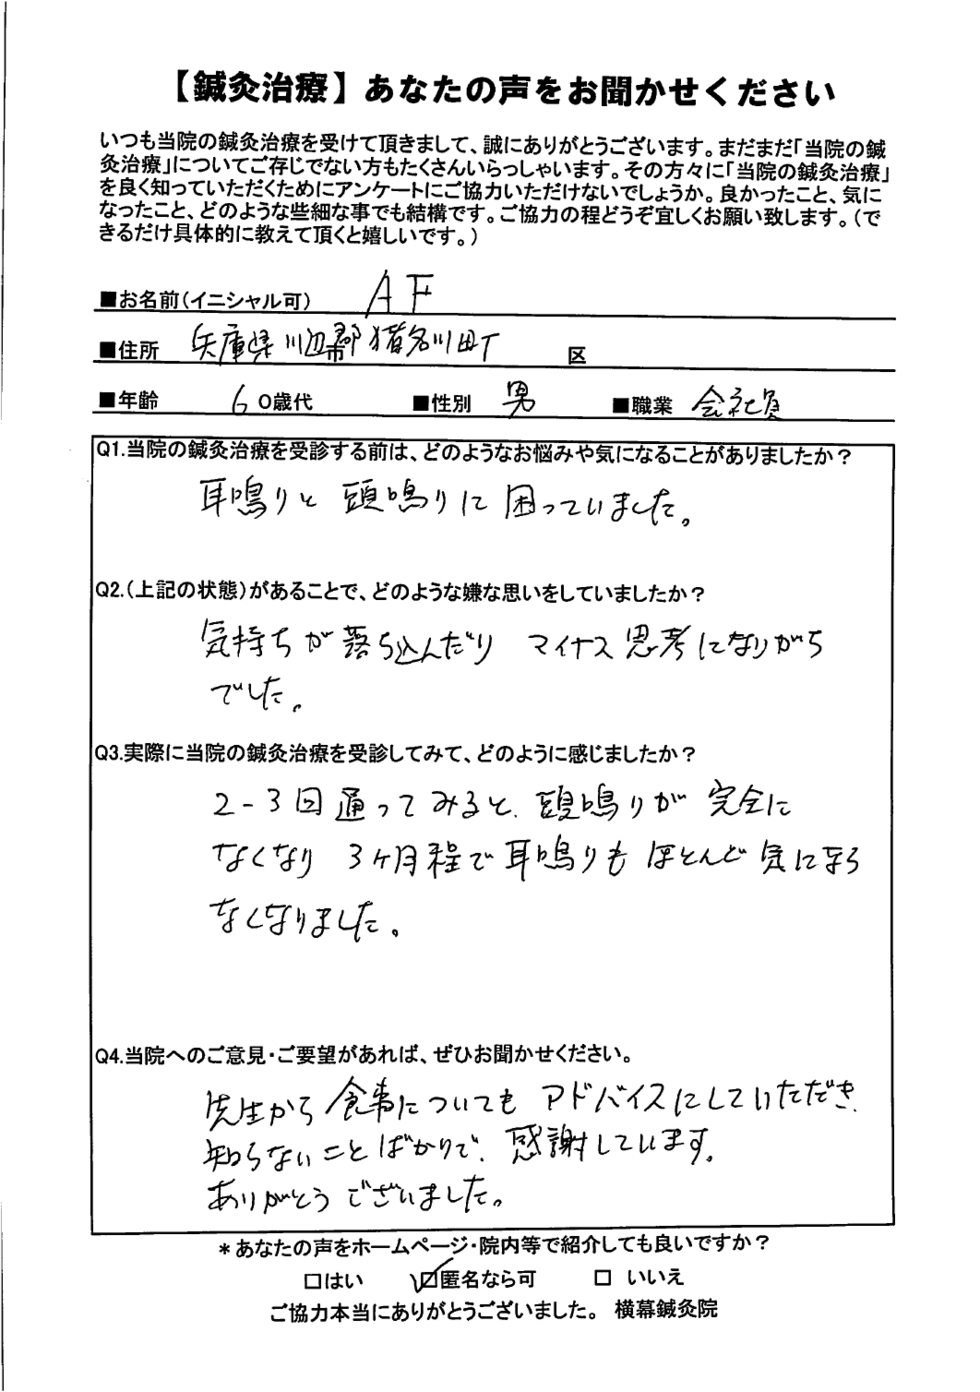 【鍼灸治療】あなたの声をお聞かせください
いつも当院の鍼灸治療を受けて頂きまして、誠にありがとうございます。まだまだ「当院の鍼
灸治療」についてご存じでない方もたくさんいらっしゃいます。その方々に「当院の鍼灸治療」
を良く知っていただくためにアンケートにご協力いただけないでしょうか。良かったこと、気に
なったこと、どのような些細な事でも結構です。ご協力の程どうぞ宜しくお願い致します。(で
きるだけ具体的に教えて頂くと嬉しいです。)
■お名前(イニシャル可) AF
■住所 兵庫県川辺郡猪名川町 区
■年齢 60歳代 ■性別 男 ■職業 会社員
Q1.当院の鍼灸治療を受診する前は、どのようなお悩みや気になることがありましたか?
耳鳴りと頭鳴りに困っていました。
Q2.(上記の状態)があることで、どのような嫌な思いをしていましたか?
気持ちが落ち込んだり マイナス思考になりがち
でした。
Q3.実際に当院の鍼灸治療を受診してみて、どのように感じましたか?
2-3回通ってみると、頭鳴りが完全に
なくなり 3ヶ月程で耳鳴りもほとんど気になら
なくなりました。
Q4.当院へのご意見・ご要望があれば、ぜひお聞かせください。
先生から食事についてもアドバイスにしていただき、
知らないことばかりで、感謝しています。
ありがとうございました。
*あなたの声をホームページ・院内等で紹介しても良いですか?
□はい ☑匿名なら可 □ いいえ
ご協力本当にありがとうございました。 横幕鍼灸院